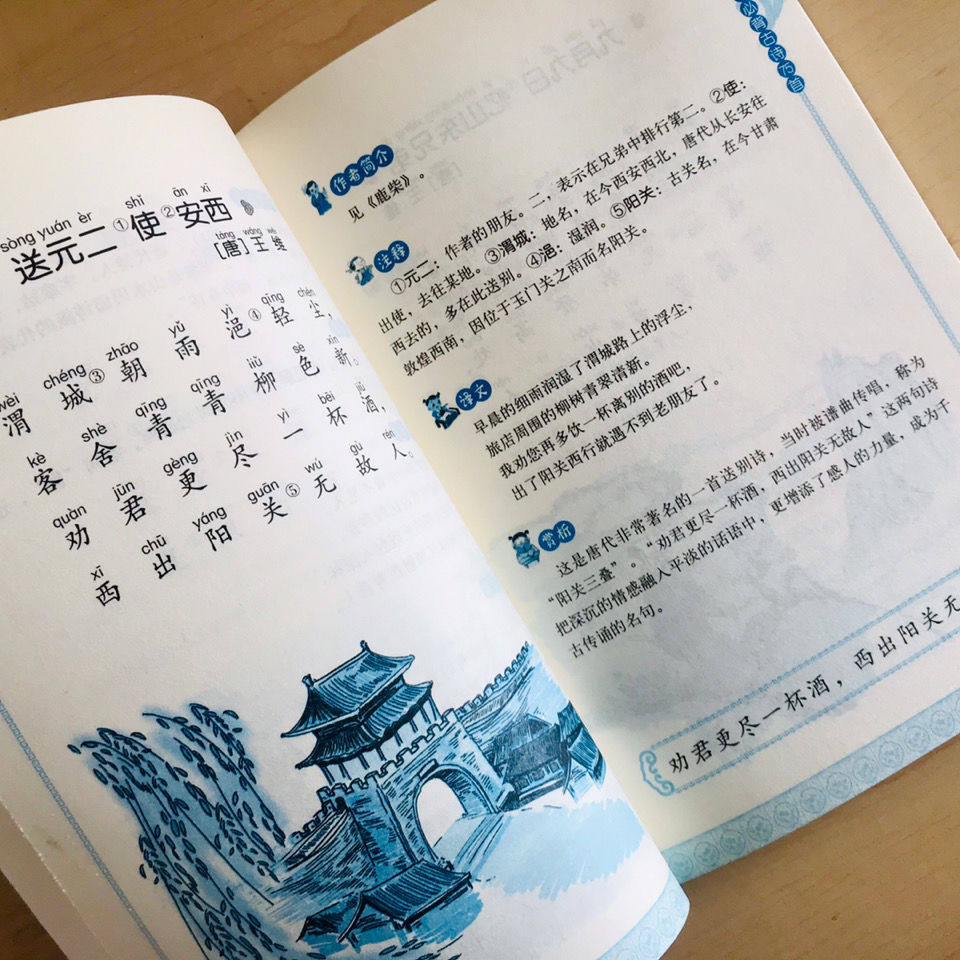 sòng yuán èr shǐ ān xī
送元二①使②安西
táng wáng wéi
[唐]王维
wèi chéng zhāo yǔ yì qīng chén
渭城③朝雨浥④轻尘，
kè shè qīng qīng liǔ sè xīn
客舍青青柳色新。
quàn jūn gèng jìn yì bēi jiǔ
劝君更尽一杯酒，
xī chū yáng guān wú gù rén
西出阳关⑤无故人。
必背古诗75首
作者简介
见《鹿柴》。
注释
①元二：作者的朋友。二，表示在兄弟中排行第二。②使：
出使，去往某地。③渭城：地名，在今西安西北，唐代从长安往
西去的，多在此送别。④浥：湿润。⑤阳关：古关名，在今甘肃
敦煌西南，因位于玉门关之南而名阳关。
译文
早晨的细雨润湿了渭城路上的浮尘，
旅店周围的柳树青翠清新。
我劝您再多饮一杯离别的酒吧，
出了阳关西行就遇不到老朋友了。
赏析
这是唐代非常著名的一首送别诗，当时被谱曲传唱，称为
“阳关三叠”。“劝君更尽一杯酒，西出阳关无故人”这两句诗
把深沉的情感融入平淡的话语中，更增添了感人的力量，成为千
古传诵的名句。
劝君更尽一杯酒，西出阳关无